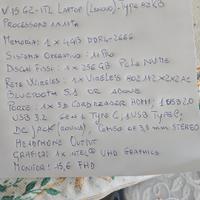 V15 G2-ITL LAPTOP (LENOVO)-TYPE 82KB
PROCESSORE
MEMORIA: 1 x 4GB DDR4-2666
SISTEMA OPERATIVO: 11 PRO
DISCHI FISSI: 1 x 256 GB PCIe NVMe
RETE WIRELESS: 1 x WIRELESS 802.11AC 2x2 AC
BLUETOOTH 5.1 OR ABOVE
PORTE: 1 x CARD READER, HDMI, 1 USB 2.0
USB 3.2 GEN 1 TYPE C, 1 USB TYPE C,
DC JACK (ROUND), COMBO 3,5 MM STEREO
HEADPHONE OUTPUT
GRAFICA: 1 x INTEL UHD GRAPHICS
MONITOR: 15,6 FHD